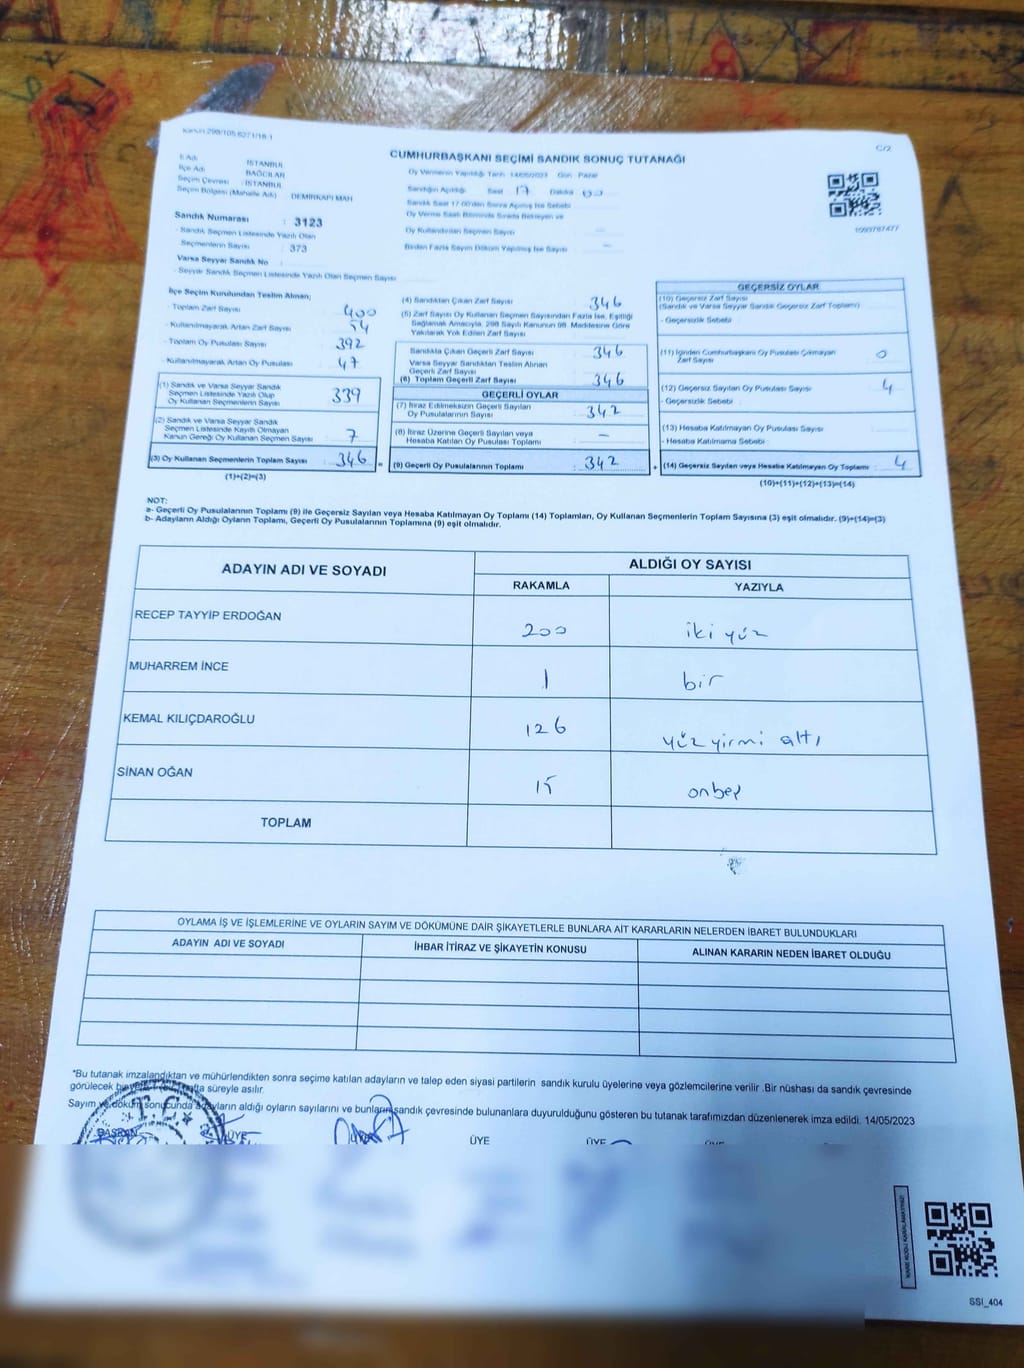 Kanun 298/105,6271/18-1
C/2
CUMHURBAŞKANI SEÇİMİ SANDIK SONUÇ TUTANAĞI
İl Adı : İSTANBUL
İlçe Adı : BAĞCILAR
Seçim Çevresi : İSTANBUL
Seçim Bölgesi (Mahalle Adı) : DEMİRKAPI MAH
Oy Vermenin Yapıldığı Tarih 14/05/2023 Gün : Pazar
Sandığın Açıldığı Saat 17 Dakika 00
Sandık Saat 17:00'den Sonra Açılmış İse Sebebi
Oy Verme Saati Bitiminde Sırada Bekleyen ve
Oy Kullandırılan Seçmen Sayısı —
Birden Fazla Sayım Döküm Yapılmış İse Sayısı —
Sandık Numarası : 3123
- Sandık Seçmen Listesinde Yazılı Olan
Seçmenlerin Sayısı : 373
Varsa Seyyar Sandık No :
- Seyyar Sandık Seçmen Listesinde Yazılı Olan Seçmen Sayısı
İlçe Seçim Kurulundan Teslim Alınan;
- Toplam Zarf Sayısı : 400
- Kullanılmayarak Artan Zarf Sayısı : 54
- Toplam Oy Pusulası Sayısı : 392
- Kullanılmayarak Artan Oy Pusulası : 47
(1) Sandık ve Varsa Seyyar Sandık
Seçmen Listesinde Yazılı Olup
Oy Kullanan Seçmenlerin Sayısı : 339
(2) Sandık ve Varsa Seyyar Sandık
Seçmen Listesinde Kayıtlı Olmayan
Kanun Gereği Oy Kullanan Seçmen Sayısı : 7
(3) Oy Kullanan Seçmenlerin Toplam Sayısı : 346 =
(1)+(2)=(3)
(4) Sandıktan Çıkan Zarf Sayısı : 346
(5) Zarf Sayısı Oy Kullanan Seçmen Sayısından Fazla İse, Eşitliği
Sağlamak Amacıyla, 298 Sayılı Kanunun 98. Maddesine Göre
Yakılarak Yok Edilen Zarf Sayısı :
Sandıkta Çıkan Geçerli Zarf Sayısı : 346
Varsa Seyyar Sandıktan Teslim Alınan
Geçerli Zarf Sayısı :
(6) Toplam Geçerli Zarf Sayısı : 346
GEÇERLİ OYLAR
(7) İtiraz Edilmeksizin Geçerli Sayılan
Oy Pusulalarının Sayısı : 342
(8) İtiraz Üzerine Geçerli Sayılan veya
Hesaba Katılan Oy Pusulası Toplamı : —
(9) Geçerli Oy Pusulalarının Toplamı : 342 +
1090787477
GEÇERSİZ OYLAR
(10) Geçersiz Zarf Sayısı
(Sandık ve Varsa Seyyar Sandık Geçersiz Zarf Toplamı) :
- Geçersizlik Sebebi :
(11) İçinden Cumhurbaşkanı Oy Pusulası Çıkmayan
Zarf Sayısı : 0
(12) Geçersiz Sayılan Oy Pusulası Sayısı : 4
- Geçersizlik Sebebi :
(13) Hesaba Katılmayan Oy Pusula Sayısı :
- Hesaba Katılmama Sebebi :
(14) Geçersiz Sayılan veya Hesaba Katılmayan Oy Toplamı : 4
(10)+(11)+(12)+(13)=(14)
NOT:
a- Geçerli Oy Pusulalarının Toplamı (9) ile Geçersiz Sayılan veya Hesaba Katılmayan Oy Toplamı (14) Toplamları, Oy Kullanan Seçmenlerin Toplam Sayısına (3) eşit olmalıdır. (9)+(14)=(3)
b- Adayların Aldığı Oyların Toplamı, Geçerli Oy Pusulalarının Toplamına (9) eşit olmalıdır.
ADAYIN ADI VE SOYADI
ALDIĞI OY SAYISI
RAKAMLA YAZIYLA
RECEP TAYYİP ERDOĞAN 200 iki yüz
MUHARREM İNCE 1 bir
KEMAL KILIÇDAROĞLU 126 yüz yirmi altı
SİNAN OĞAN 15 onbeş
TOPLAM
OYLAMA İŞ VE İŞLEMLERİNE VE OYLARIN SAYIM VE DÖKÜMÜNE DAİR ŞİKAYETLERLE BUNLARA AİT KARARLARIN NELERDEN İBARET BULUNDUKLARI
ADAYIN ADI VE SOYADI İHBAR İTİRAZ VE ŞİKAYETİN KONUSU ALINAN KARARIN NEDEN İBARET OLDUĞU
*Bu tutanak imzalandıktan ve mühürlendikten sonra seçime katılan adayların ve talep eden siyasi partilerin sandık kurulu üyelerine veya gözlemcilerine verilir .Bir nüshası da sandık çevresinde
görülecek bir yere 1 hafta süreyle asılır.
Sayım ve döküm sonucunda adayların aldığı oyların sayılarını ve bunların sandık çevresinde bulunanlara duyurulduğunu gösteren bu tutanak tarafımızdan düzenlenerek imza edildi. 14/05/2023
T.C.
BAŞKAN ÜYE ÜYE ÜYE
SSI_404